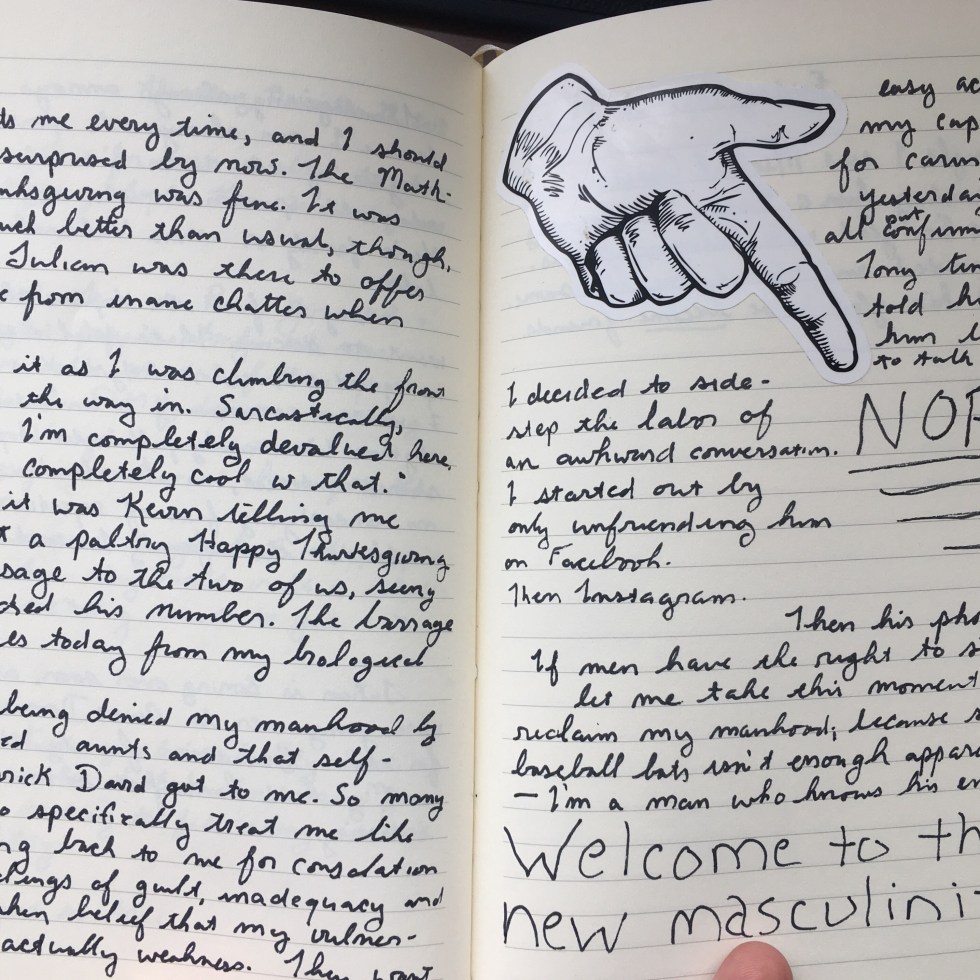 ts me every time, and I should
surprised by now. The Math-
nksgiving was fine. It was
uch better than usual, though,
Julian was there to offer
e from inane chatter when
it as I was climbing the front
the way in. Sarcastically,
I'm completely devalued here,
completely cool w that."
it was Kevin telling me
t a paltry Happy Thanksgiving
sage to the two of us, seeing
cked his number. The barrage
es today from my biological
being denied my manhood by
ed aunts and that self-
rick David got to me. So many
o specifically treat me like
ng back to me for consolation
elings of guilt, inadequacy and
ken belief that my vulner-
actually weakness. They want
easy ac
my cap
for carin
yesterda
all out confirm
Tony
told h
him
to talk
I decided to side-
step the labor of
an awkward conversation.
NOP
I started out by
only unfriending him
on Facebook.
Then Instagram.
Then his pho
If men have the right to s
let me take this moment
reclaim my manhood; because s
baseball bats isn't enough appare
– I'm a man who knows his en
Welcome to th
new masculini